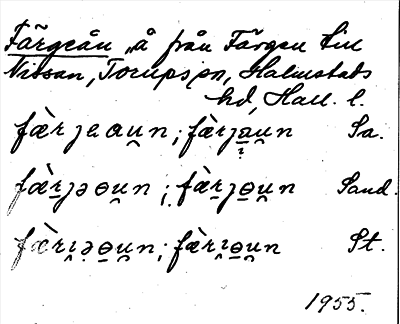 Färgeån „å från Färgen till
Nissan, Torups sn, Halmstads
hd, Hall. l.
fæ̀rjeau̯n; fæ̀rja̠u̯n Sa.
fæ̀r̠jəɵu̯n; fæ̀r̠jɵ̠u̯n Sand.
fæ̀rı̯əɵ̠u̯n; fæ̀rı̯ɵ̠u̯n St.
1955.